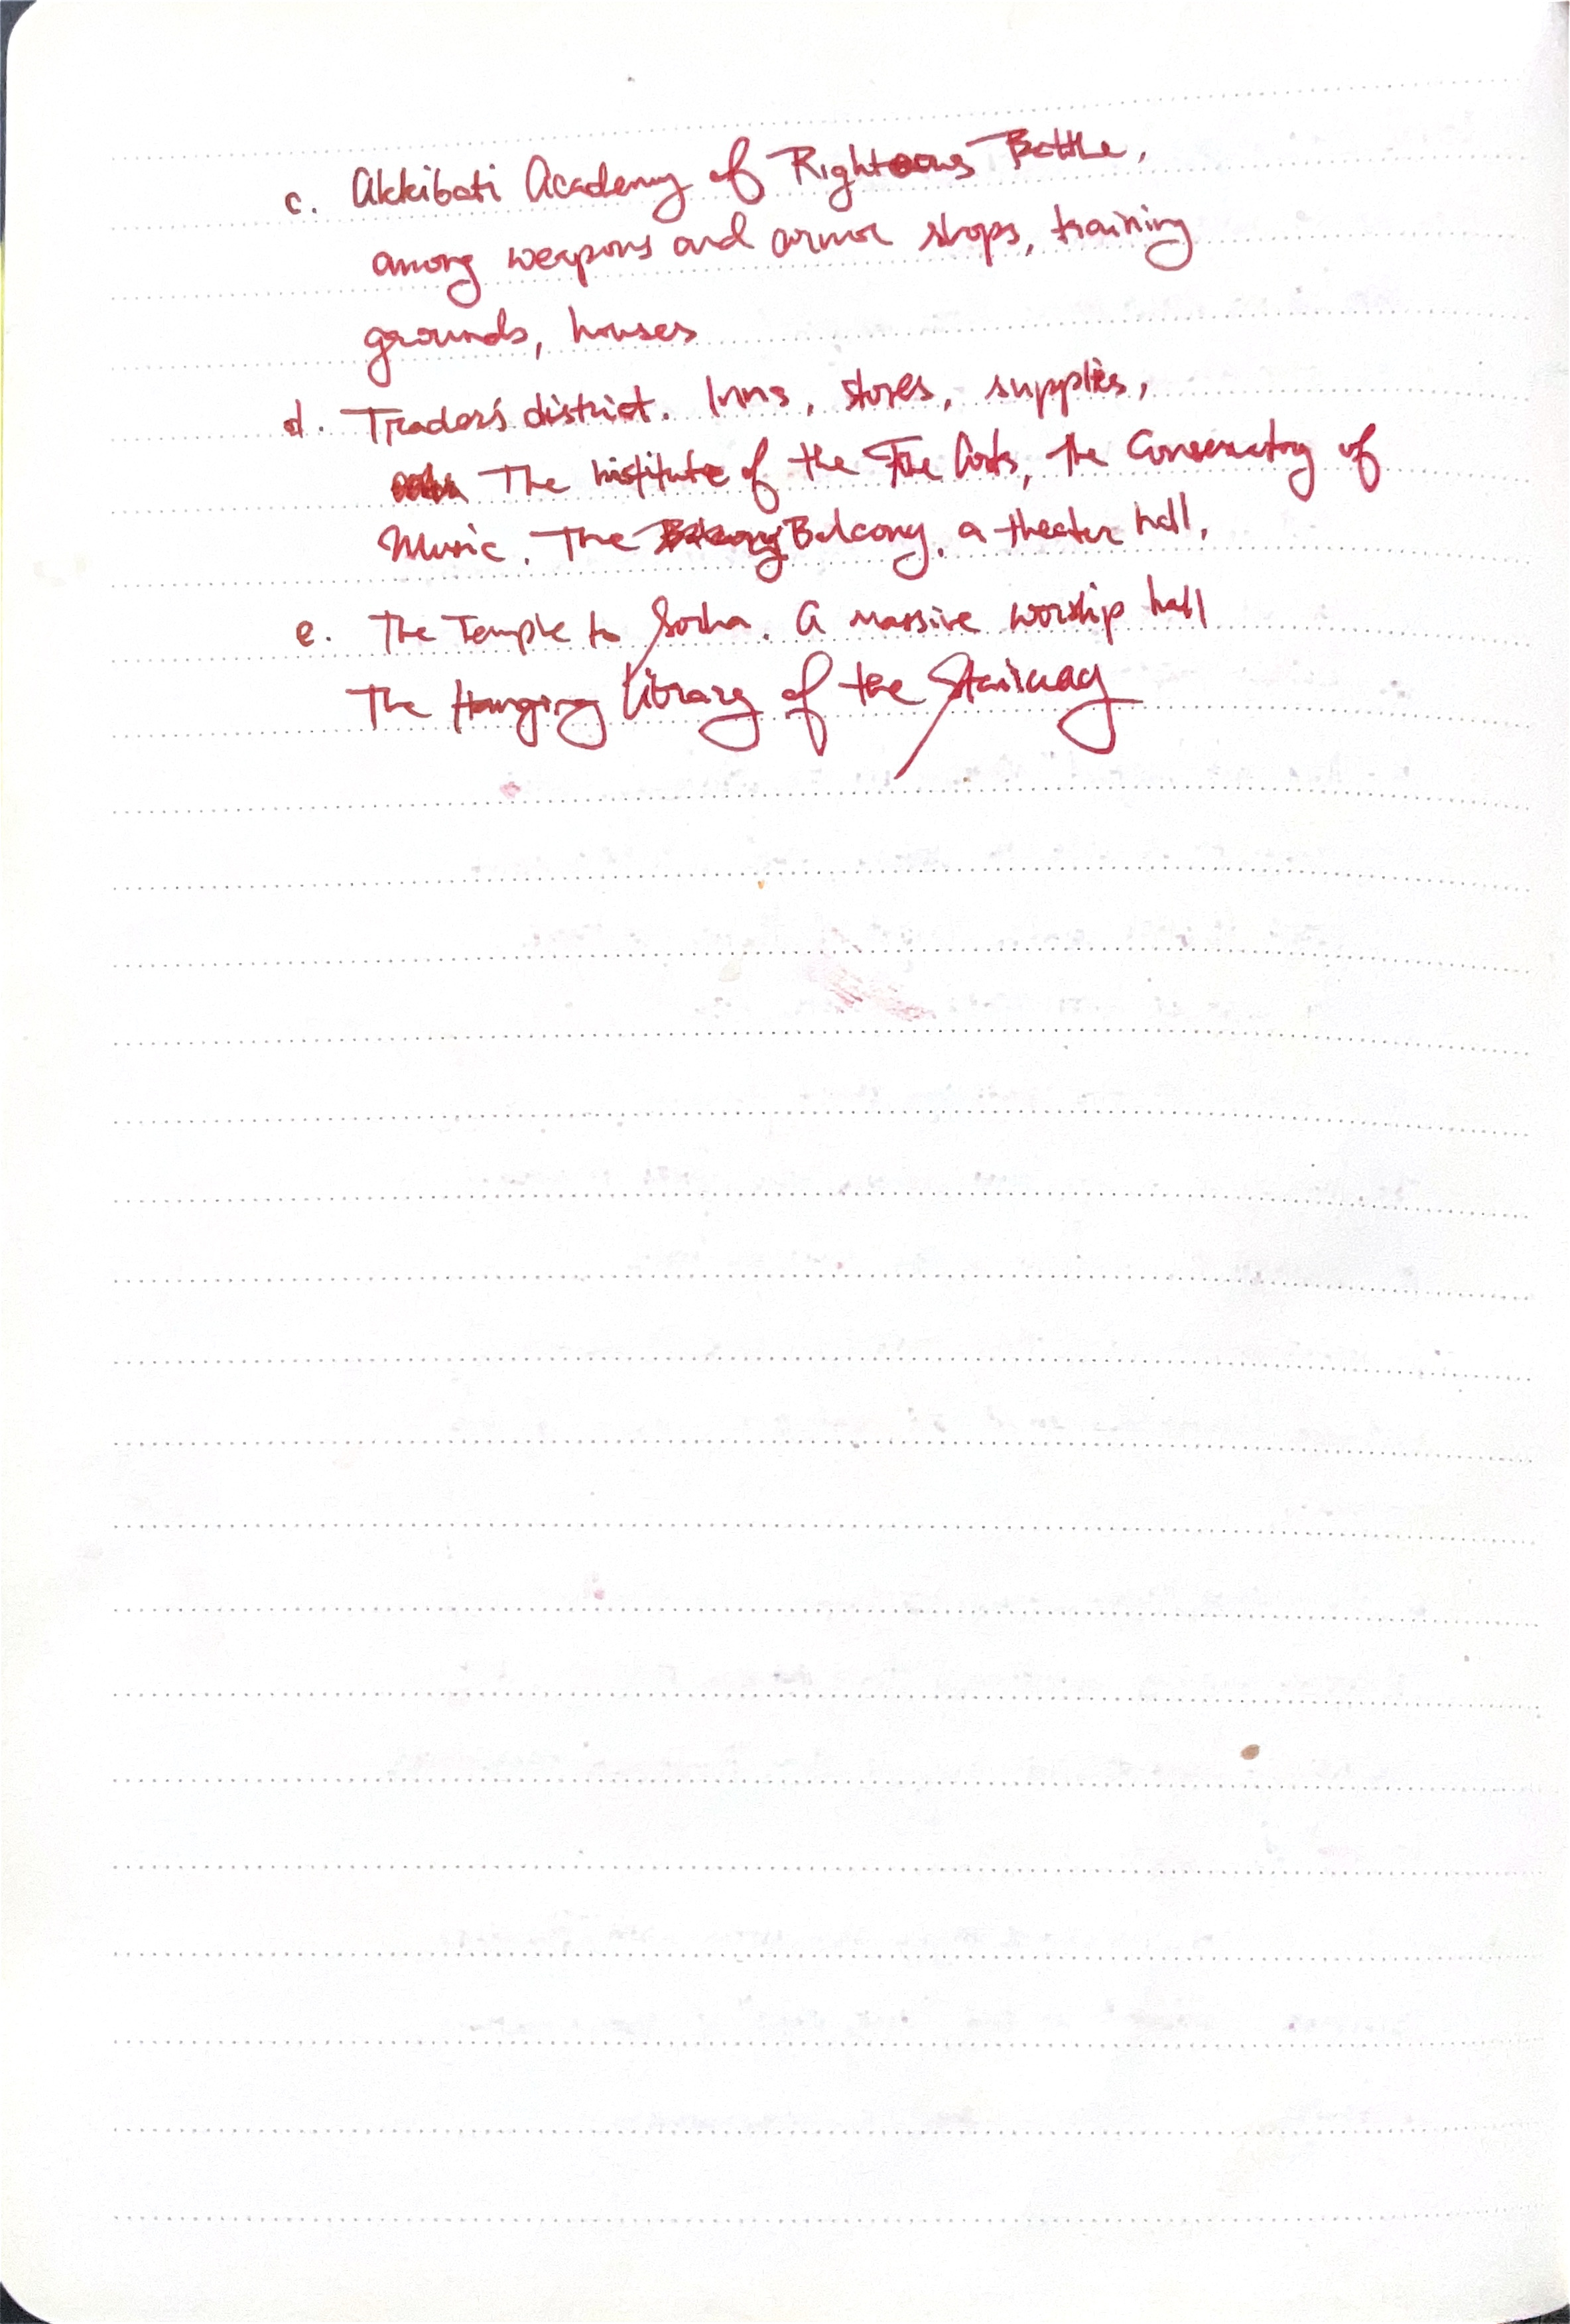 c. Akkibati Academy of Righteous Battle,
among weapons and armor shops, training
grounds, houses
d. Trader's district. Inns, stores, supplies,
The Institute of the Fine Arts, the Conservatory of
Music. The Balcony, a theater hall,
e. The Temple to Sorha. A massive worship hall
The Hanging Library of the Stairway